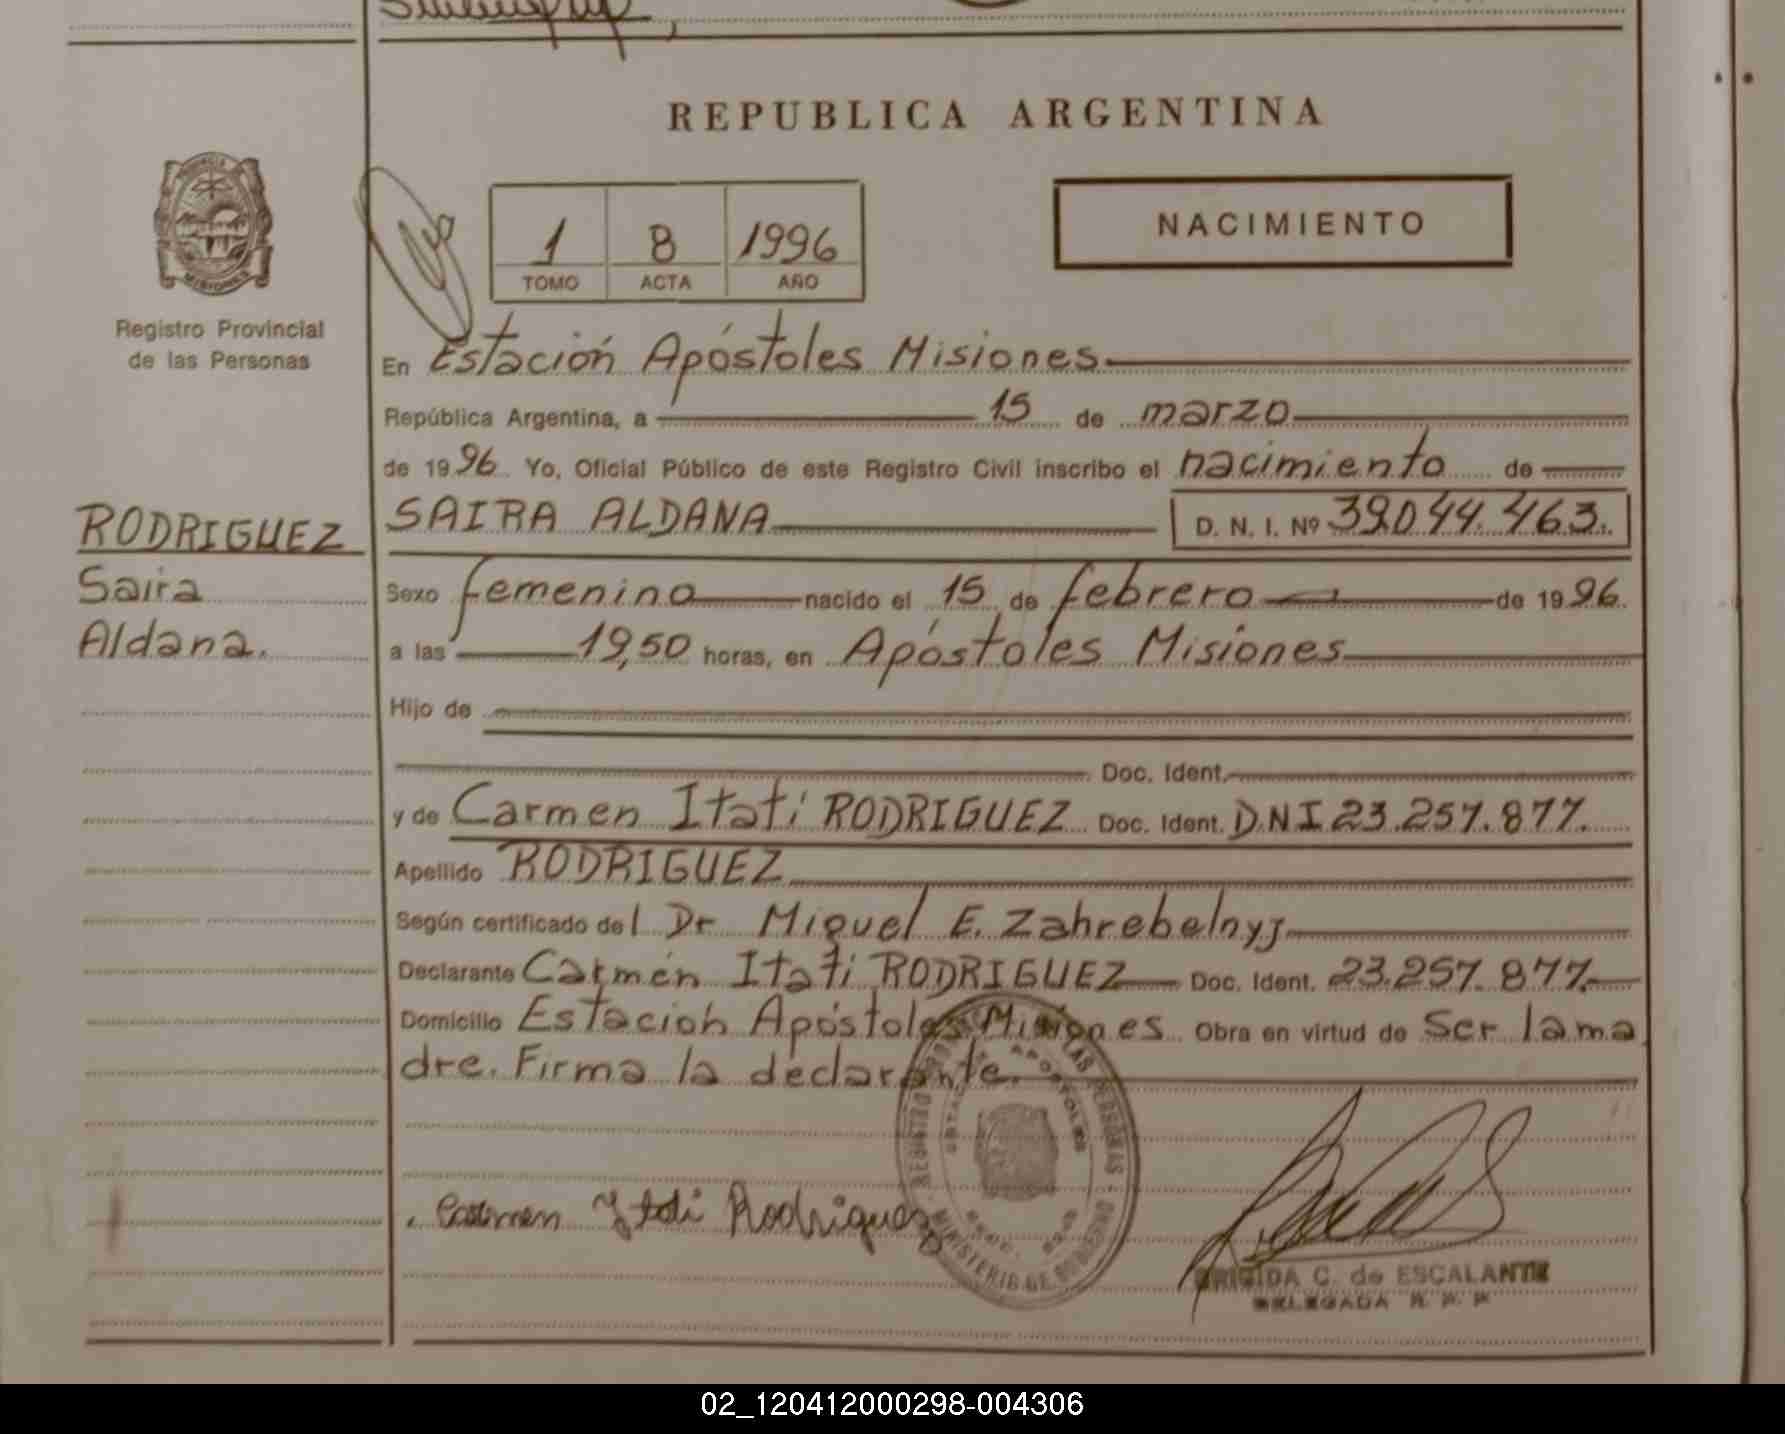 REPUBLICA ARGENTINA
PROVINCIA DE MISIONES
Registro Provincial
de las Personas
1 8 1996
TOMO ACTA AÑO
NACIMIENTO
En Estación Apóstoles Misiones
República Argentina, a 15 de marzo
de 1996 Yo, Oficial Público de este Registro Civil inscribo el nacimiento de
RODRIGUEZ
Saira
Aldana.
SAIRA ALDANA D. N. I. Nº 39.044.463.
Sexo femenino nacido el 15 de febrero de 1996.
a las 19,50 horas, en Apóstoles Misiones
Hijo de
Doc. Ident.
y de Carmen Itatí RODRIGUEZ Doc. Ident. DNI 23.257.877.
Apellido RODRIGUEZ
Según certificado del Dr Miguel E. Zahrebelnyj
Declarante Carmen Itatí RODRIGUEZ Doc. Ident. 23.257.877.
Domicilio Estación Apóstoles Misiones Obra en virtud de Ser la ma
dre. Firma la declarante.
REGISTRO PROVINCIAL DE LAS PERSONAS
MINISTERIO DE GOBIERNO
ESTACION APOSTOLES
Carmen Ytati Rodriguez
BRIGIDA C. de ESCALANTE
DELEGADA R. P. P.
02_120412000298-004306